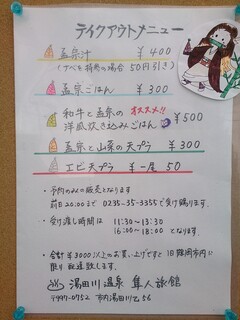 テイクアウトメニュー
孟宗汁 ¥400
(ナベを持参の場合 50円引き)
孟宗ごはん ¥300
和牛と孟宗の オススメ!!
洋風炊き込みごはん ¥500
孟宗と山菜の天プラ ¥300
エビ天プラ ¥一尾 50
・予約のみの販売となります
前日20:00まで 0235-35-3355で受け賜ります。
・受け渡し時間は 11:30~13:30
16:00~18:00 となります。
・合計¥3000以上のお買い上げですと 旧鶴岡市内に
限り配達致します。
湯田川温泉 隼人旅館
〒997-0752 市内湯田川乙56